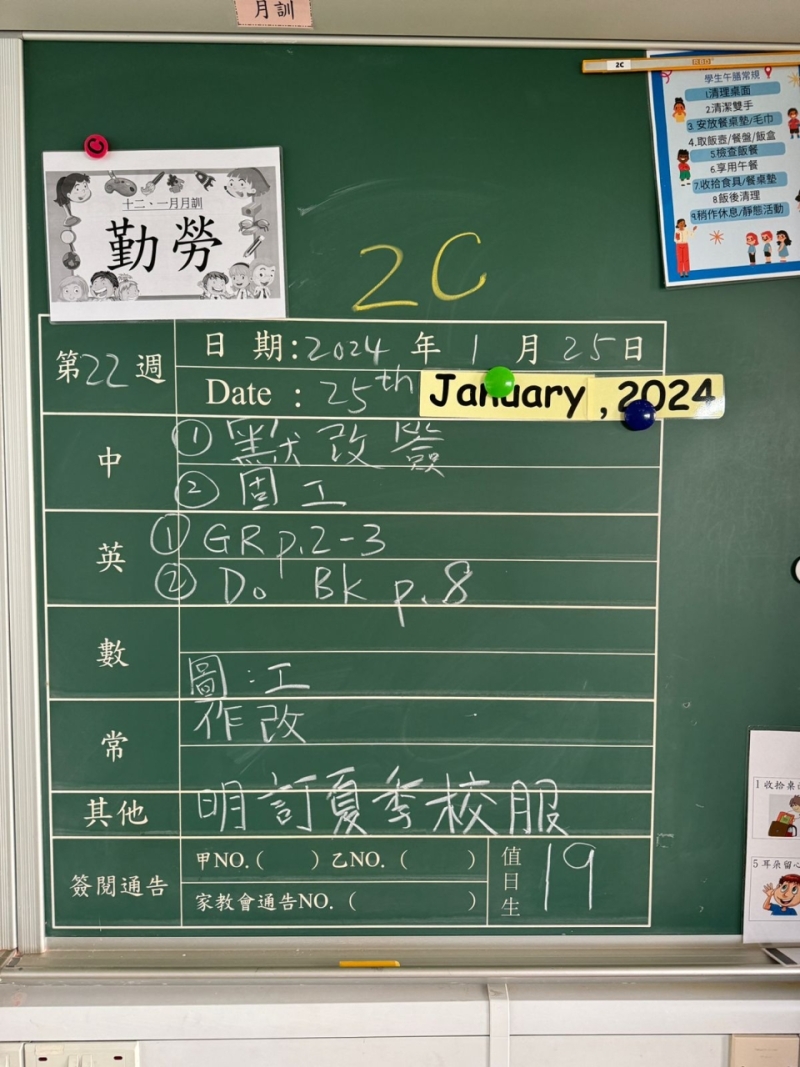 月訓
2C
學生午膳常規
1清理桌面
2.清潔雙手
3.安放餐桌墊/毛巾
4.取飯壺/餐盤/飯盒
5檢查飯餐
6.享用午餐
7.收拾食具/餐桌墊
8.飯後清理
9.稍作休息/靜態活動
C
十二、一月月訓
勤勞
2C
第22週
日 期:2024 年 1 月 25日
Date : 25th January, 2024
中
① 默改簽
② 固工
英
① GR p.2-3
② Do BK p.8
數
圖:工
常
作改
其他
明訂夏季校服
簽閱通告
甲NO.( ) 乙NO. ( )
家教會通告NO. ( )
值日生
19
1 收拾桌
5 耳朵留心